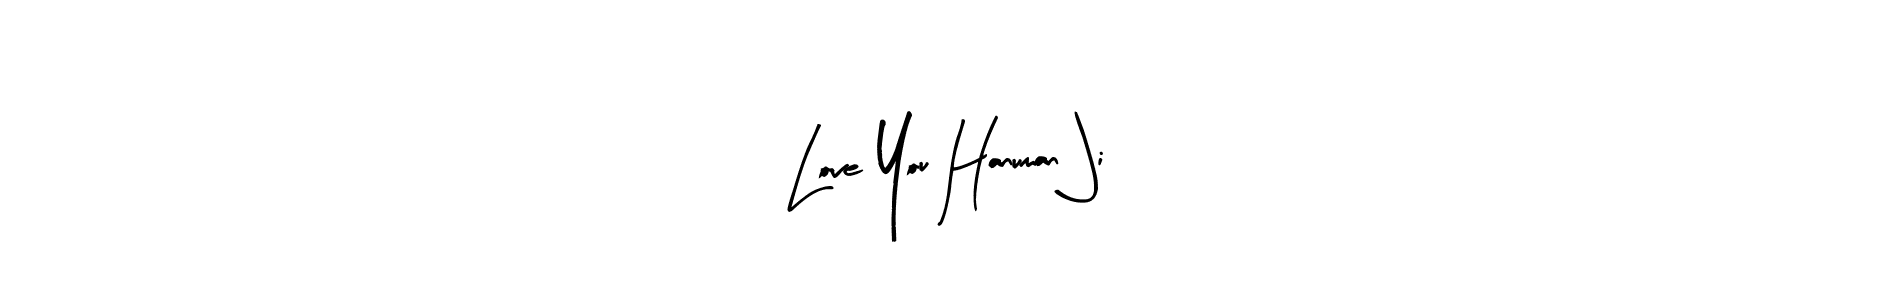 Love You Hanuman Ji